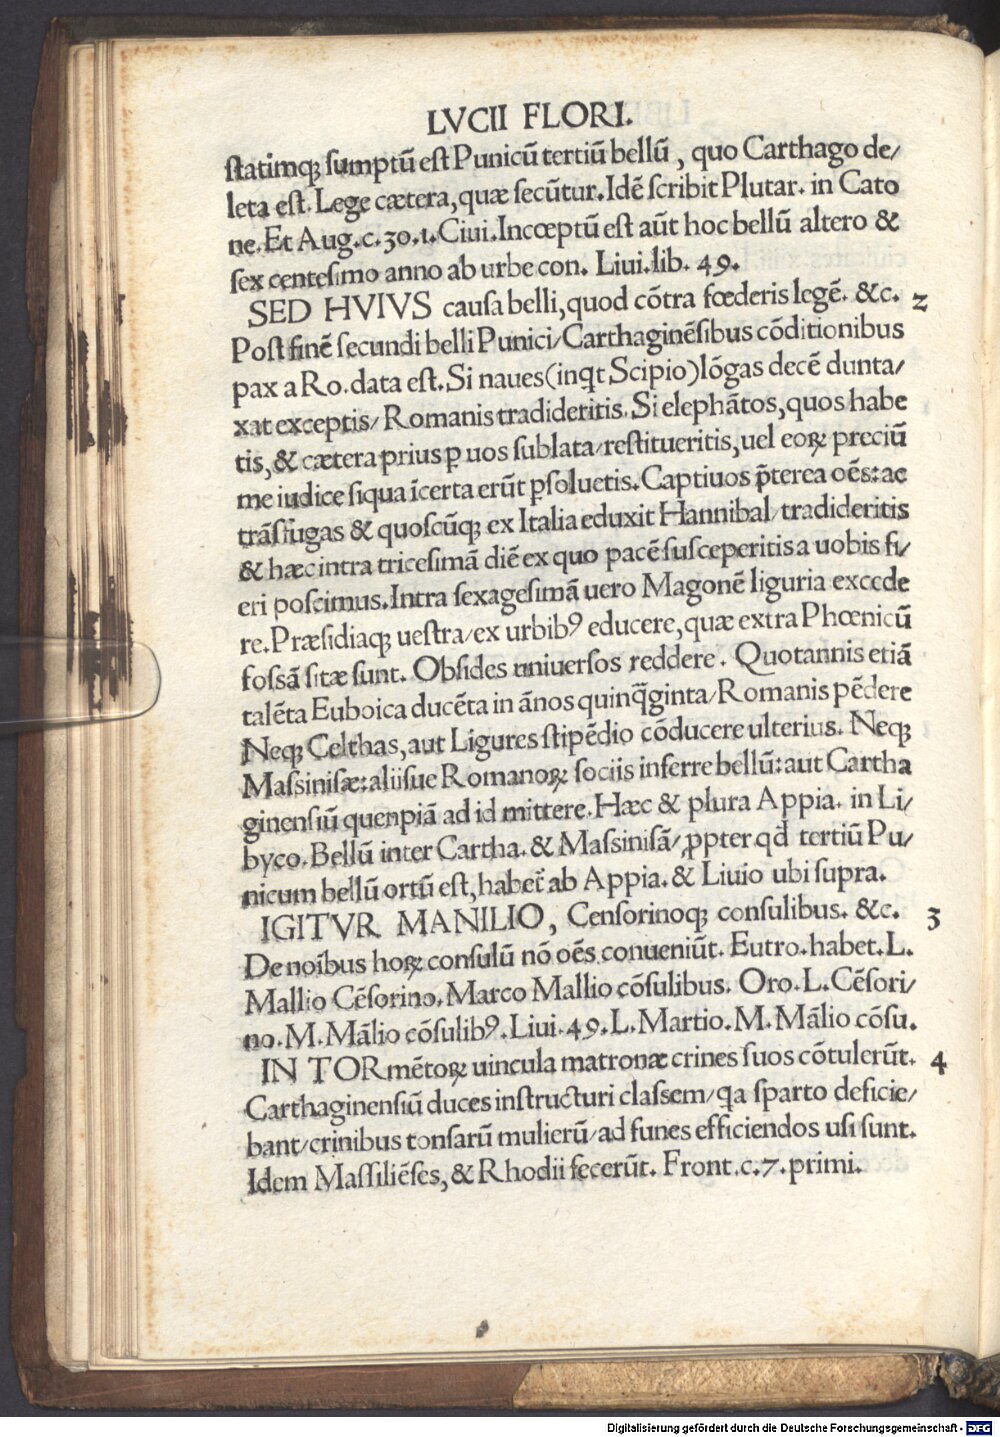 LVCII FLORI.
ſtatimqꝫ ſumptũ eſt Punicũ tertiũ bellũ, quo Carthago de/
leta eſt. Lege cætera, quæ ſecũtur. Idẽ ſcribit Plutar. in Cato
ne. Et Aug. c. 30. 1. Ciui. Incœptũ eſt aũt hoc bellũ altero &
ſex centeſimo anno ab urbe con. Liui. lib. 49.
SED HVIVS cauſa belli, quod cõtra fœderis legẽ. &c. 2
Poſt finẽ ſecundi belli Punici/ Carthaginẽſibus cõditionibus
pax a Ro. data eſt. Si naues (inqt Scipio) lõgas decẽ dunta/
xat exceptis/ Romanis tradideritis. Si elephãtos, quos habe
tis, & cætera prius ꝑ uos ſublata/ reſtitueritis, uel eoꝝ preciũ
me iudice ſiqua ĩcerta erũt ꝑſoluetis. Captiuos p̃terea oẽs: ac
trãſfugas & quoſcũqꝫ ex Italia eduxit Hannibal/ tradideritis
& hæc intra triceſimã diẽ ex quo pacẽ ſuſceperitis a uobis fi/
eri poſcimus. Intra ſexageſimã uero Magonẽ liguria excede
re. Præſidiaqꝫ ueſtra/ ex urbibꝰ educere, quæ extra Phœnicũ
foſſã ſitæ ſunt. Obſides uniuerſos reddere. Quotannis etiã
talẽta Euboica ducẽta in ãnos quinq̃ginta/ Romanis pẽdere
Neqꝫ Celthas, aut Ligures ſtipẽdio cõducere ulterius. Neqꝫ
Maſsiniſæ: aliiſue Romanoꝝ ſociis inferre bellũ: aut Cartha
ginenſiũ quenpiã ad id mittere. Hæc & plura Appia. in Li/
byco. Bellũ inter Cartha. & Maſsiniſã/ ꝓpter qd̃ tertiũ Pu/
nicum bellũ ortũ eſt, habet̃ ab Appia. & Liuio ubi ſupra.
IGITVR MANILIO, Cenſorinoqꝫ conſulibus. &c. 3
De noĩbus hoꝝ conſulũ nõ oẽs conueniũt. Eutro. habet. L.
Mallio Cẽſorino. Marco Mallio cõſulibus. Oro. L. Cẽſori/
no. M. Mãlio cõſulibꝰ. Liui. 49. L. Martio. M. Mãlio cõſu.
IN TORmẽtoꝝ uincula matronæ crines ſuos cõtulerũt. 4
Carthaginenſiũ duces inſtructuri claſſem/ qa ſparto deficie/
bant/ crinibus tonſarũ mulierũ/ ad funes efficiendos uſi ſunt.
Idem Maſſiliẽſes, & Rhodii fecerũt. Front. c. 7. primi.
Digitalisierung gefördert durch die Deutsche Forschungsgemeinschaft - DFG